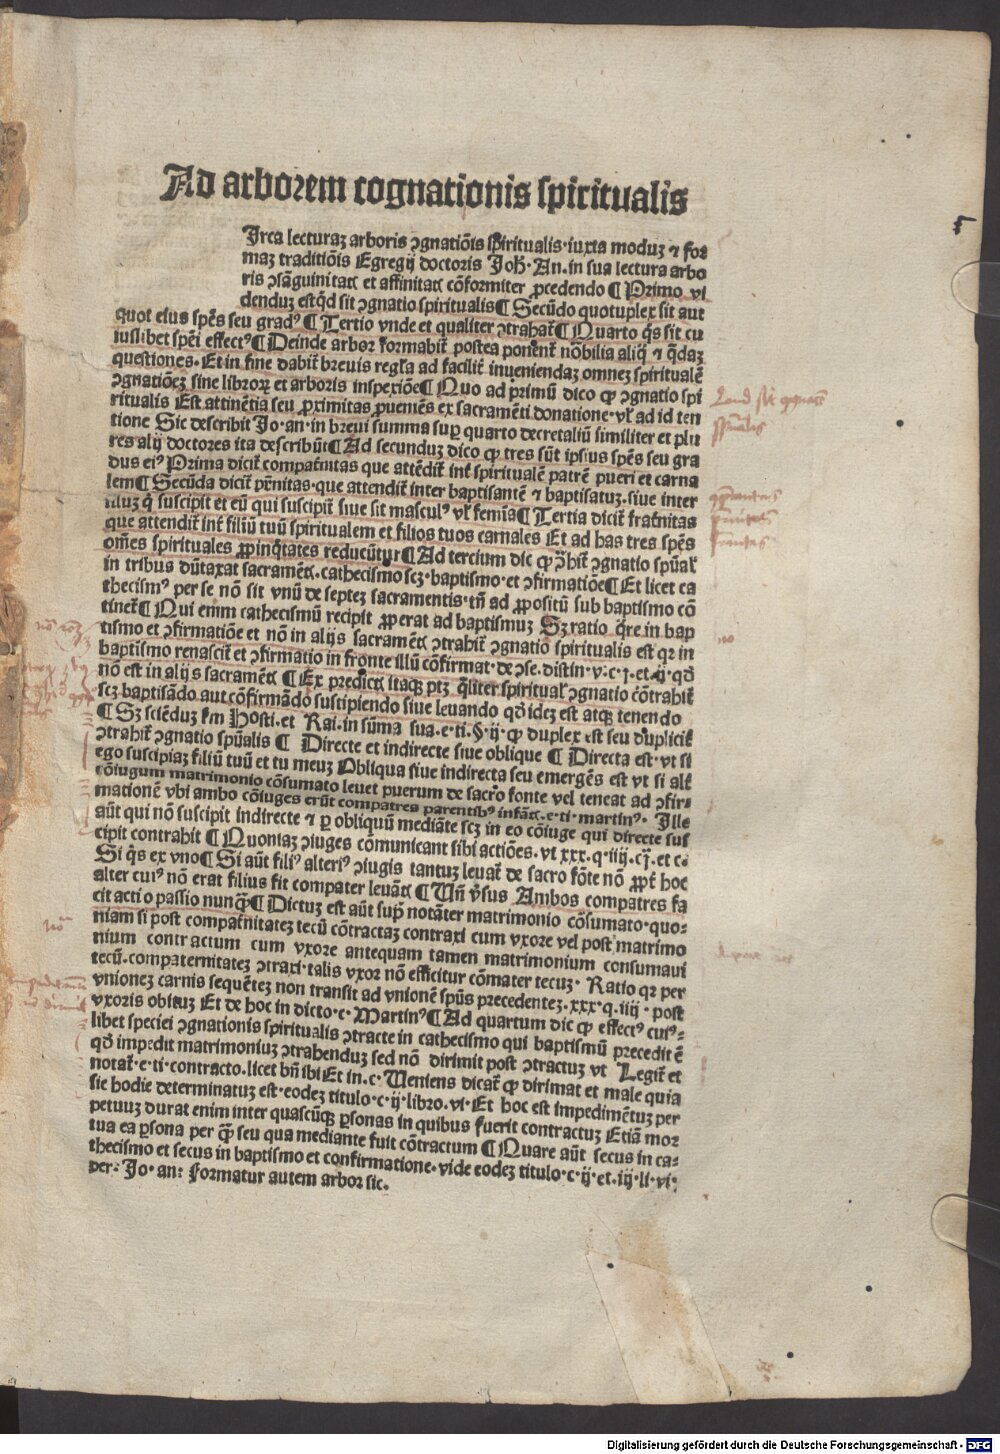 Ad arborem cognationis spiritualis
Irca lecturaꝫ arboris ꝯgnatiōis spiritualis·iuxta moduꝫ ⁊ for
maꝫ traditiōis Egregij doctoris Joh̄·An·in sua lectura arbo
ris ꝯsāguinitatꝭ et affinitatꝭ cōformiter ꝓcedendo ¶ Primo vi
denduꝫ est qͥd sit ꝯgnatio spiritualis¶ Secūdo quotuplex sit aut
quot eius spēs seu gradꝰ ¶ Tertio vnde et qualiter ꝯtrahat̄¶ Quarto qͥs sit cu
iuslibet spēi effectꝰ¶ Deinde arbor formabit̄ postea ponent̄ nōbilia aliqͣ ⁊ qͥdaꝫ
questiones· Et in fine dabit̄ breuis regl̄a ad facilit̄ inueniendaꝫ omneꝫ spiritualē
ꝯgnationeꝫ sine libroꝝ et arboris inspexiōe¶ Quo ad primū dico ꝙ ꝯgnatio spi
ritualis Est attinētia seu ꝓximitas ꝓueniēs ex sacramēti donatione·vl̄ ad id ten
tione Sic describit Jo·an·in breui summa suꝑ quarto decretaliū similiter et plu
res alij doctores ita describūt¶ Ad secunduꝫ dico ꝙ tres sūt ipsius spēs seu gra
dus eiꝰ Prima dicit̄ compat̄nitas que attēdit̄ int̄ spiritualē patrē pueri et carna
lem¶ Secūda dicit̄ pr̄nitas·que attendit̄ inter baptisantē ⁊ baptisatuꝫ·siue inter
illuꝫ qͥ suscipit et eū qui suscipit̄ siue sit masculꝰ vl̄ femīa¶ Tertia dicit̄ frat̄nitas
que attendit̄ int̄ filiū tuū spiritualem et filios tuos carnales Et ad has tres spēs
om̄es spirituales ꝓpinqͥtates reducūtur¶ Ad tercium dic ꝙ ꝯt̄hit̄ ꝯgnatio spūal̄
in tribus dūtaxat sacramētꝭ·cathecismo scꝫ·baptismo·et ꝯfirmatiōe¶ Et licet ca
thecismꝰ per se nō sit vnū de septeꝫ sacramentis·tn̄ ad ꝓpositū sub baptismo cō
tinet̄¶ Qui enim cathecismū recipit ꝓperat ad baptismuꝫ Sꝫ ratio qͣre in bap
tismo et ꝯfirmatiōe et nō in alijs sacramētꝭ ꝯtrahit̄ ꝯgnatio spiritualis est qꝛ in
baptismo renascit̄ et ꝯfirmatio in fronte illū cōfirmat·de ꝯse·distin·v·c·j·et·ij·qd̄
nō est in alijs sacramētꝭ ¶ Ex predictꝭ itaqꝫ ptꝫ qͣliter spiritual̄ ꝯgnatio cōtrahit̄
scꝫ baptisādo aut cōfirmādo suscipiendo siue leuando qd̄ ideꝫ est atqꝫ tenendo
¶ Sꝫ sciēduꝫ ẜm Hosti·et Rai·in sūma sua·e·ti·§·ij·ꝙ duplex est seu duplicit̄
ꝯtrahit̄ ꝯgnatio spūalis ¶ Directe et indirecte siue oblique ¶ Directa est·vt si
ego suscipiaꝫ filiū tuū et tu meuꝫ Obliqua siue indirecta seu emergēs est vt si alt̄
cōiugum matrimonio cōsumato leuet puerum de sacro fonte vel teneat ad ꝯfir·
mationē vbi ambo cōiuges erūt compatres parentibꝰ infātꝭ·e·ti·martinꝰ· Ille
aūt qui nō suscipit indirecte ⁊ ꝑ obliquū mediāte scꝫ in eo cōiuge qui directe sus
cipit contrahit ¶ Quoniaꝫ ꝯiuges cōmunicant sibi actiōes·vt xxx·q·iiij·cͣ·j·et c·
Si qͥs ex vno¶ Si aūt filiꝰ alteriꝰ ꝯiugis tantuꝫ leuat̄ de sacro fōte nō ꝓpt̄ hoc
alter cuiꝰ nō erat filius fit compater leuātꝭ ¶ Vn̄ v̄sus Ambos compatres fa
cit actio passio nunqͣꝫ¶ Dictuꝫ est aūt supͣ notāter matrimonio cōsumato·quo·
niam si post compat̄nitateꝫ tecū cōtractaꝫ contraxi cum vxore vel post matrimo
nium contractum cum vxore antequam tamen matrimonium consumaui
tecū·compaternitateꝫ ꝯtraxi·talis vxor nō efficitur cōmater tecuꝫ· Ratio qꝛ per
vnioneꝫ carnis sequēteꝫ non transit ad vnionē spūs precedenteꝫ·xxx·q·iiij·post
vxoris obituꝫ Et de hoc in dicto·c·Martinꝰ¶ Ad quartum dic ꝙ effectꝰ cuiꝰ-
libet speciei ꝯgnationis spiritualis ꝯtracte in cathecismo qui baptismū precedit ē
qd̄ impedit matrimoniuꝫ ꝯtrahenduꝫ sed nō dirimit post ꝯtractuꝫ vt Legit̄ et
notat̄·e·ti·contracto·licet bn̄ ibi Et in·c·Veniens dicat̄ ꝙ dirimat et male quia
sic hodie determinatuꝫ est·eodeꝫ titulo·c·ij·libro·vi·Et hoc est impedimētuꝫ per
petuuꝫ durat enim inter quascūqꝫ ꝑsonas in quibus fuerit contractuꝫ Etiā mor
tua ea ꝑsona per qͣꝫ seu qua mediante fuit cōtractum ¶ Quare aūt secus in ca-
thecismo et secus in baptismo et confirmatione·vide eodeꝫ titulo·c·ij·et·iij·li·vi·
per· Jo·an· Formatur autem arbor sic·
Digitalisierung gefördert durch die Deutsche Forschungsgemeinschaft - DFG